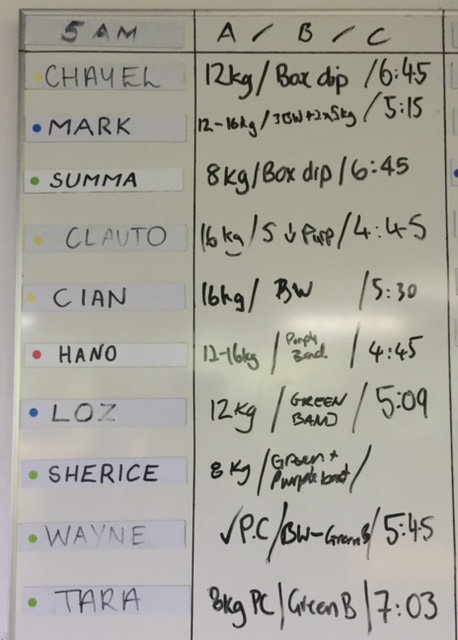 5 AM A / B / C
CHAYEL 12kg / Box dip / 6:45
MARK 12-16kg / 3BW+2x5kg / 5:15
SUMMA 8kg / Box dip / 6:45
CLAUTO 16kg / 5 ↓ Purp / 4:45
CIAN 16kg / BW / 5:30
HANO 12-16kg / Purple Band / 4:45
LOZ 12kg / GREEN BAND / 5:09
SHERICE 8kg / Green + Purple band /
WAYNE √P.C / BW-Green B / 5:45
TARA 8kg PC / Green B / 7:03